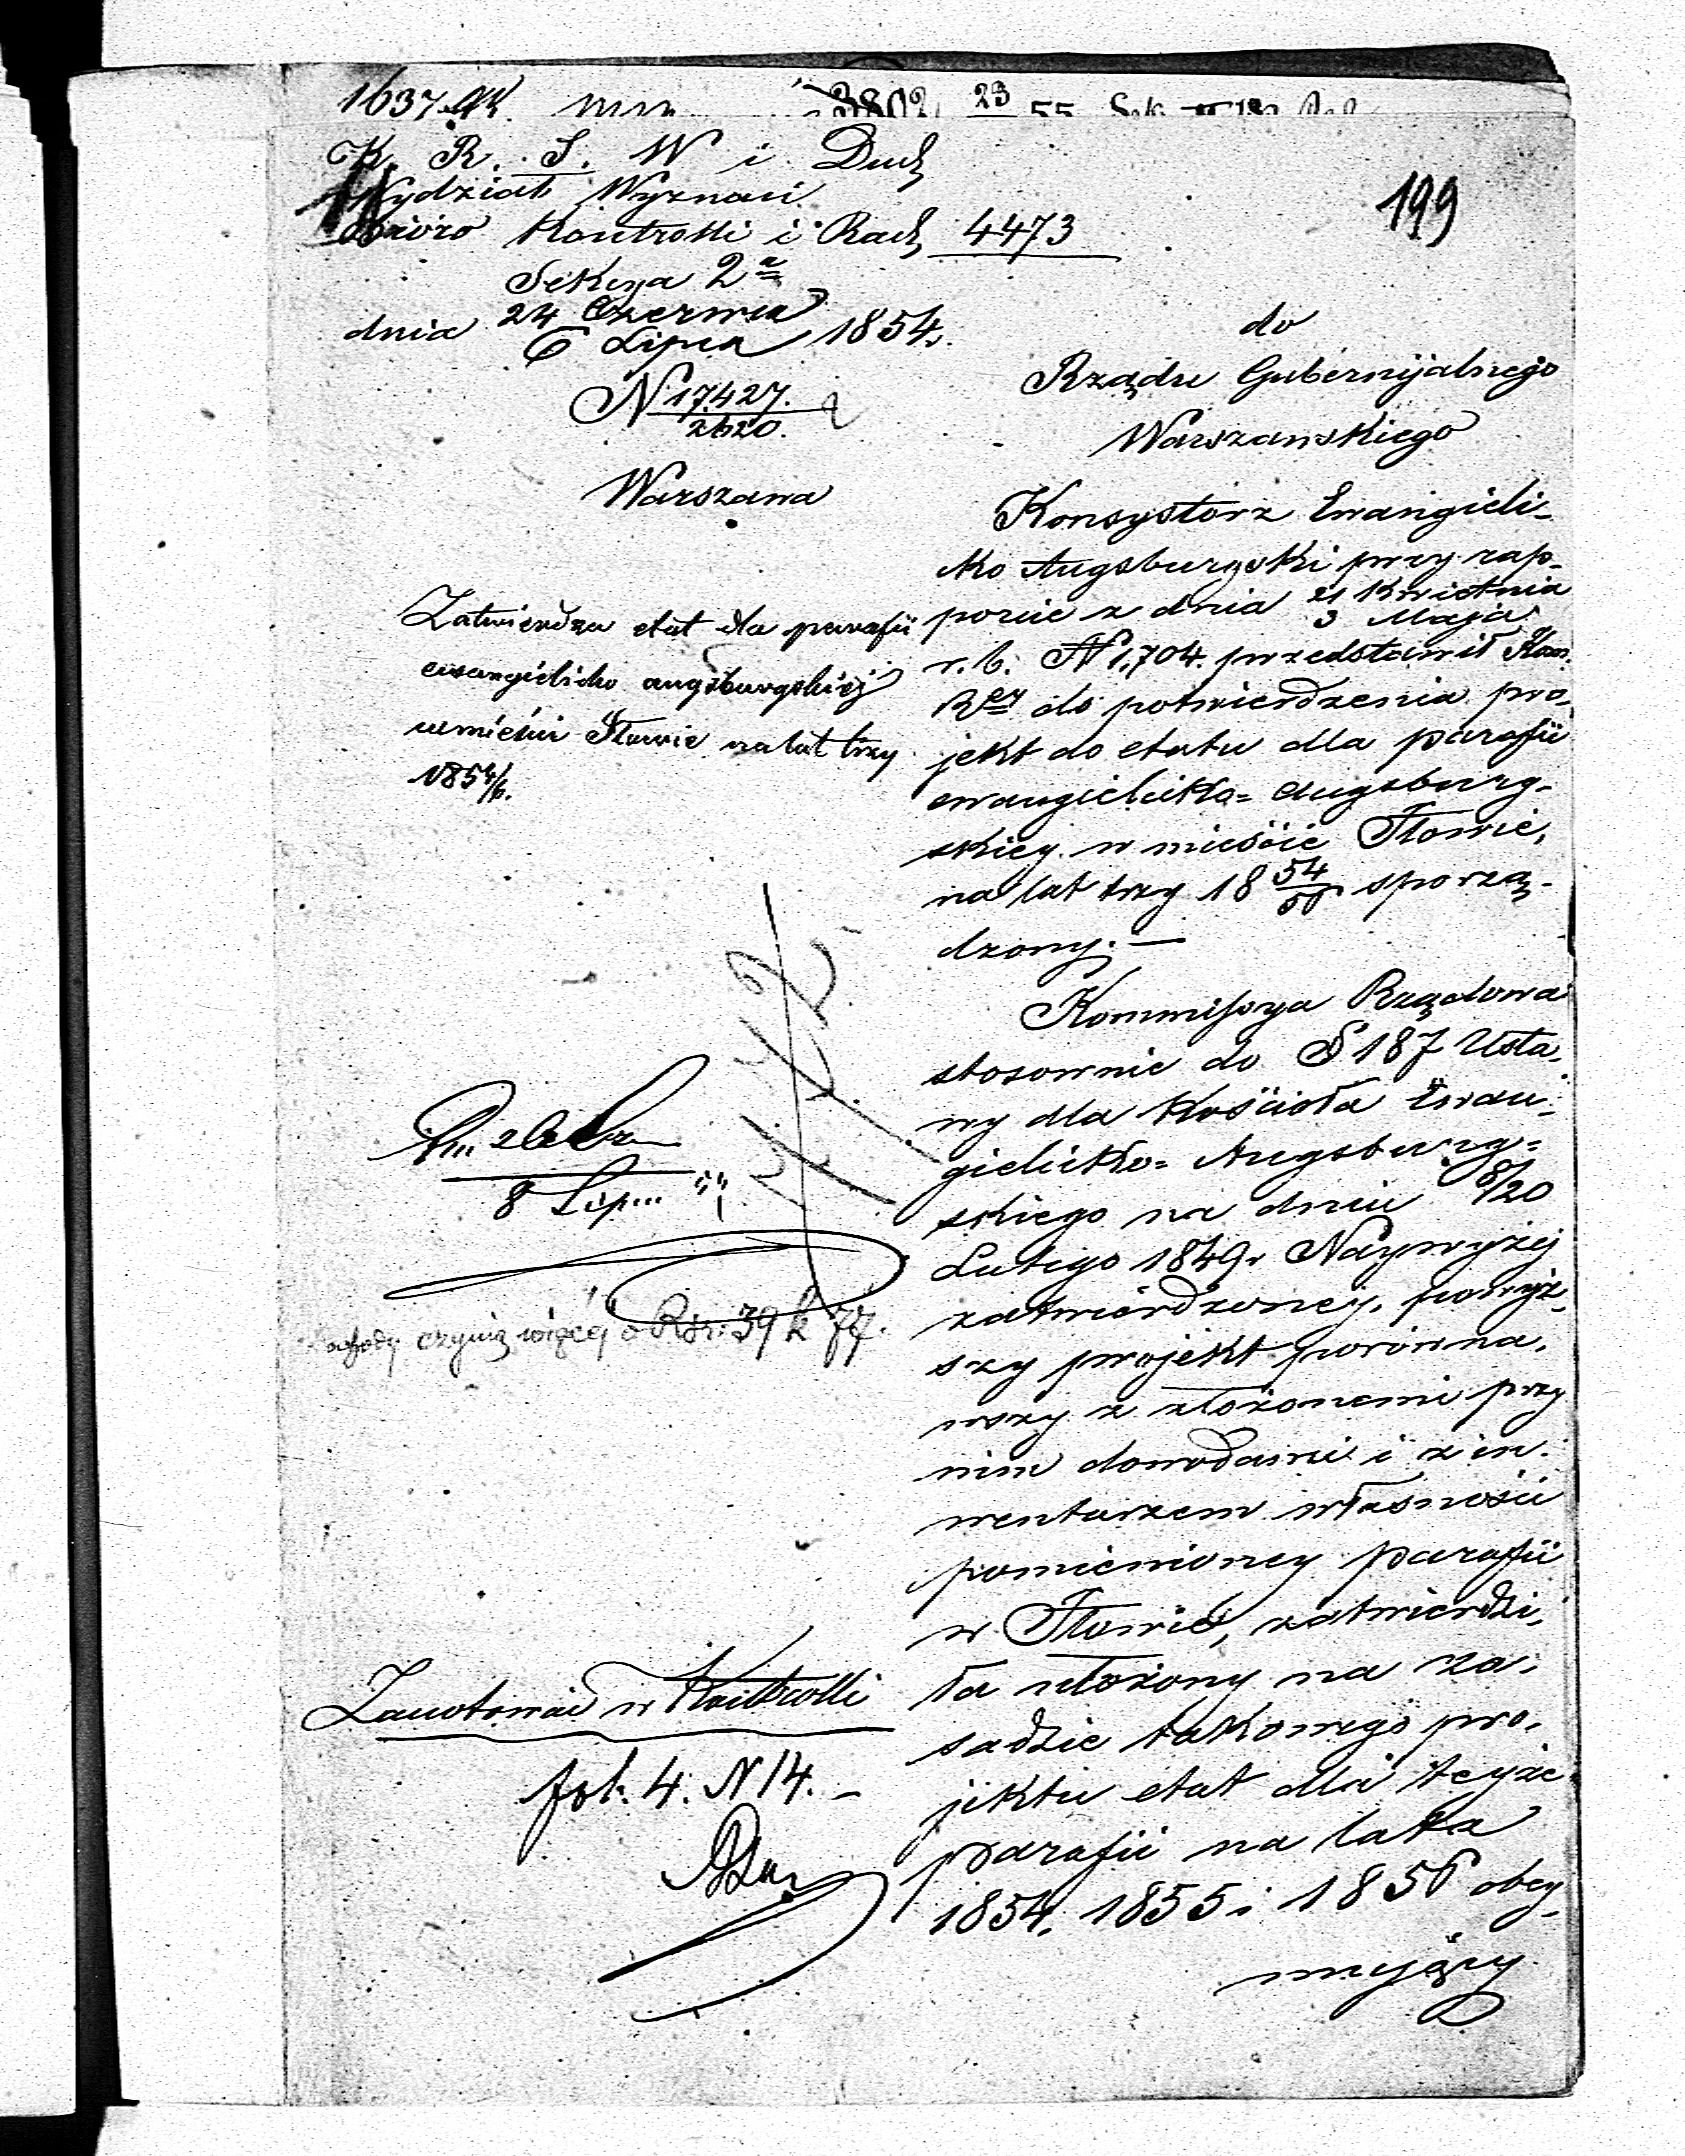 1637
3802 23 55
K. R. S. W i Duch
Wydział Wyznań
Bióro Kontrolli i Rach 4473
Sekcya 2a
dnia 24 Czerwca
6 Lipca 1854.
N 17427.
2620.
Warszawa
199
do
Rządu Gubernijalnego
Warszawskiego
Zatwierdza etat dla parafii
ewangielicko augsburgskiej
w mieście Iłowie na lat trzy
1854/6.
Konsystorz Ewangieli-
cko Augsburgski przy rap-
porcie z dnia 21 Kwietnia
3 Maja
r. b. N 1,704. przedstawił Kom.
Rzą do potwierdzenia pro-
jekt do etatu dla parafii
ewangielicko= Augsburg-
skiey w mieście Iłowie,
na lat trzy 18 54/56 sporzą-
dzony. —
Kommissya Rządowa
stosownie do § 187 Usta-
wy dla Kościoła Ewan-
gielicko= Augsburg=
skiego na dniu 8/20
Lutego 1849 r Naywyżej
zatwierdzoney, powyż-
szy projekt porówna-
wszy z złożonemi przy
nim dowodami i z in-
wentarzem własności
pomienioney parafii
w Iłowie, zatwierdzi-
ła ułożony na za-
sadzie takowego pro-
jektu etat dla teyże
parafii na lata
1854, 1855 i 1856 obey-
mujący
8 Lip...
czynią więcej o Rsr: 39 k 77.
Zanotować w Kontrolli
fol. 4. N 14. -